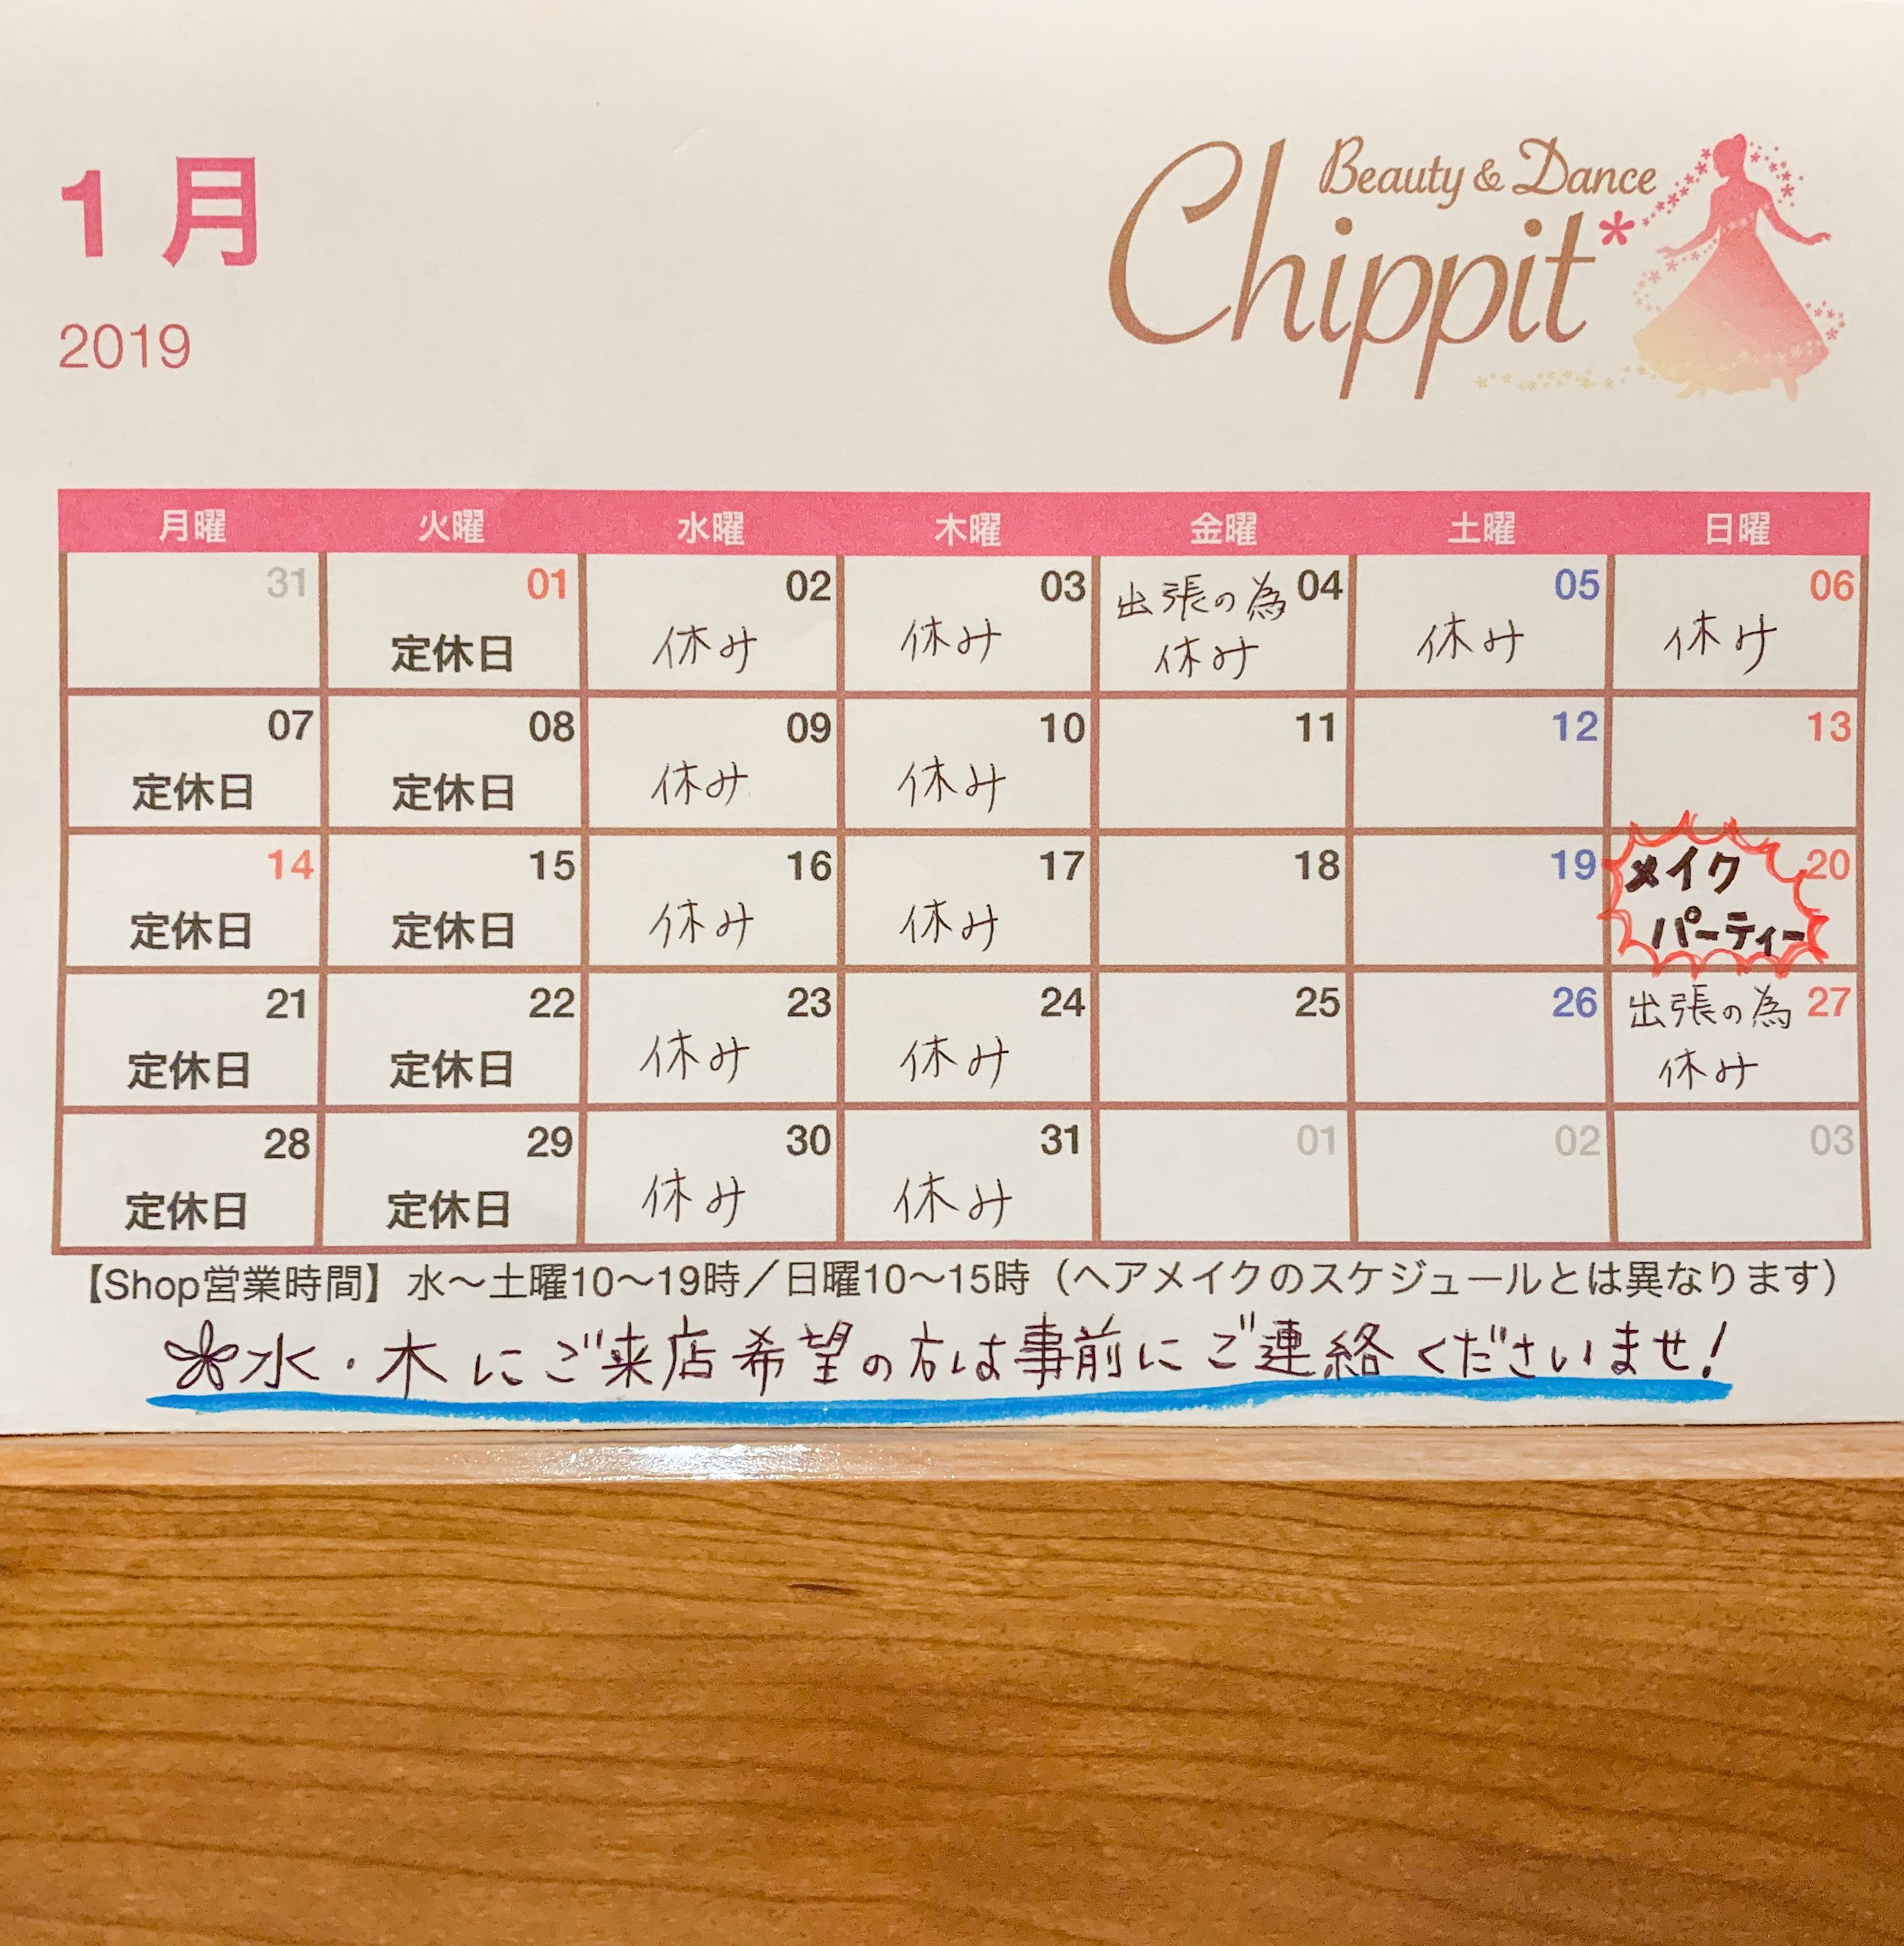 1月
2019
Beauty & Dance
Chippit*
月曜 火曜 水曜 木曜 金曜 土曜 日曜
31 01 02 03 出張の為 04 05 06
定休日 休み 休み 休み 休み 休み
07 08 09 10 11 12 13
定休日 定休日 休み 休み
14 15 16 17 18 19 メイク 20
定休日 定休日 休み 休み パーティー
21 22 23 24 25 26 出張の為 27
定休日 定休日 休み 休み 休み
28 29 30 31 01 02 03
定休日 定休日 休み 休み
【Shop営業時間】水〜土曜10〜19時／日曜10〜15時（ヘアメイクのスケジュールとは異なります）
水・木にご来店希望の方は事前にご連絡くださいませ！